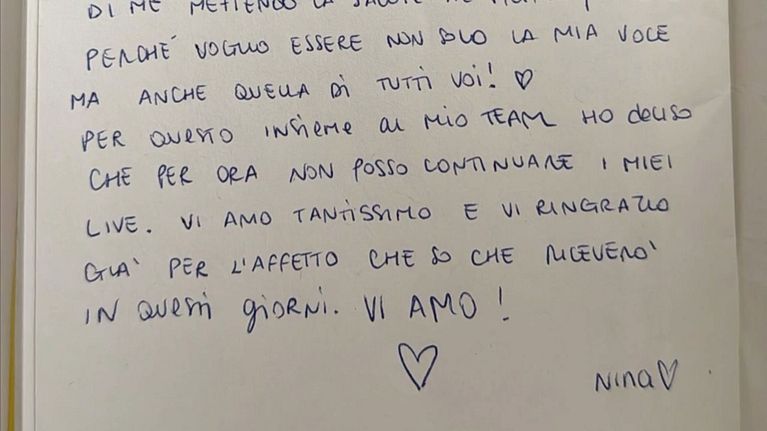 DI ME METTENDO LA SALUTE
PERCHÉ VOGLIO ESSERE NON SOLO LA MIA VOCE
MA ANCHE QUELLA DI TUTTI VOI! ♡
PER QUESTO INSIEME AL MIO TEAM HO DECISO
CHE PER ORA NON POSSO CONTINUARE I MIEI
LIVE. VI AMO TANTISSIMO E VI RINGRAZIO
GIA' PER L'AFFETTO CHE SO CHE RICEVERO'
IN QUESTI GIORNI. VI AMO!
♡
Nina♡